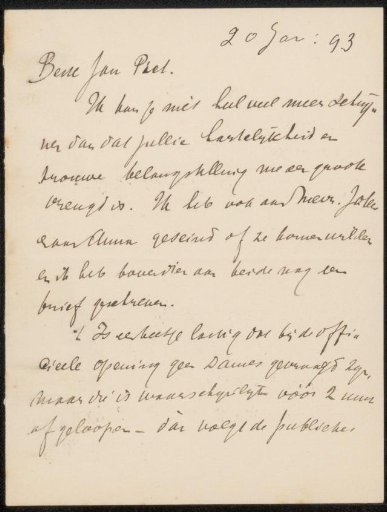 20 Jan: 93
Beste Jan Piet.
Ik kan je niet heel veel meer schrij-
ven dan dat jullie hartelijkheid en
trouwe belangstelling me een groote
vreugd is. Ik heb ook aan Mevr.
en aan Anna geseind of ze komen willen
en ik heb bovendien aan beide nog een
brief geschreven.
't Is een beetje lastig dat bij de offi-
cieele opening geen Dames gevraagd zijn,
maar die is waarschijnlijk vóór 2 uur
afgeloopen – dan volgt de publieke